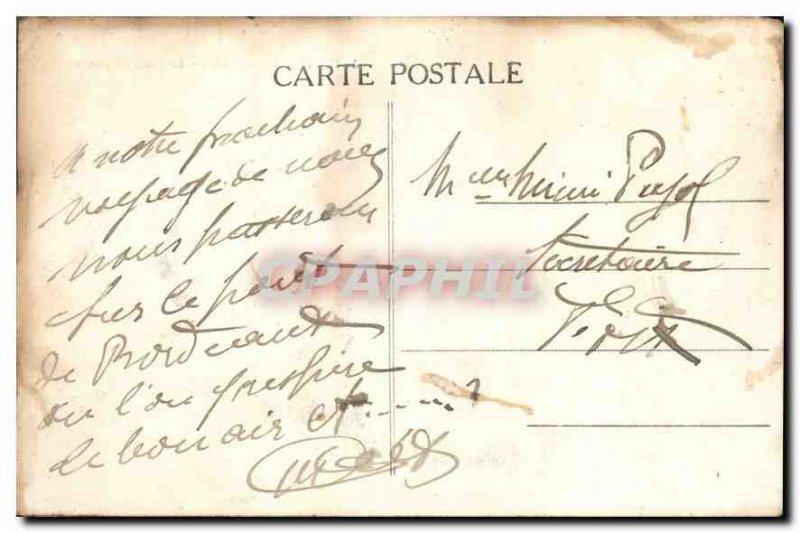 CARTE POSTALE
A notre prochain
voyage de noces
nous passerons
sur le pont
de Bordeaux
ou l'on respire
de bon air et ......?
Mimi Pujol
Secretaire
CPAPHIL